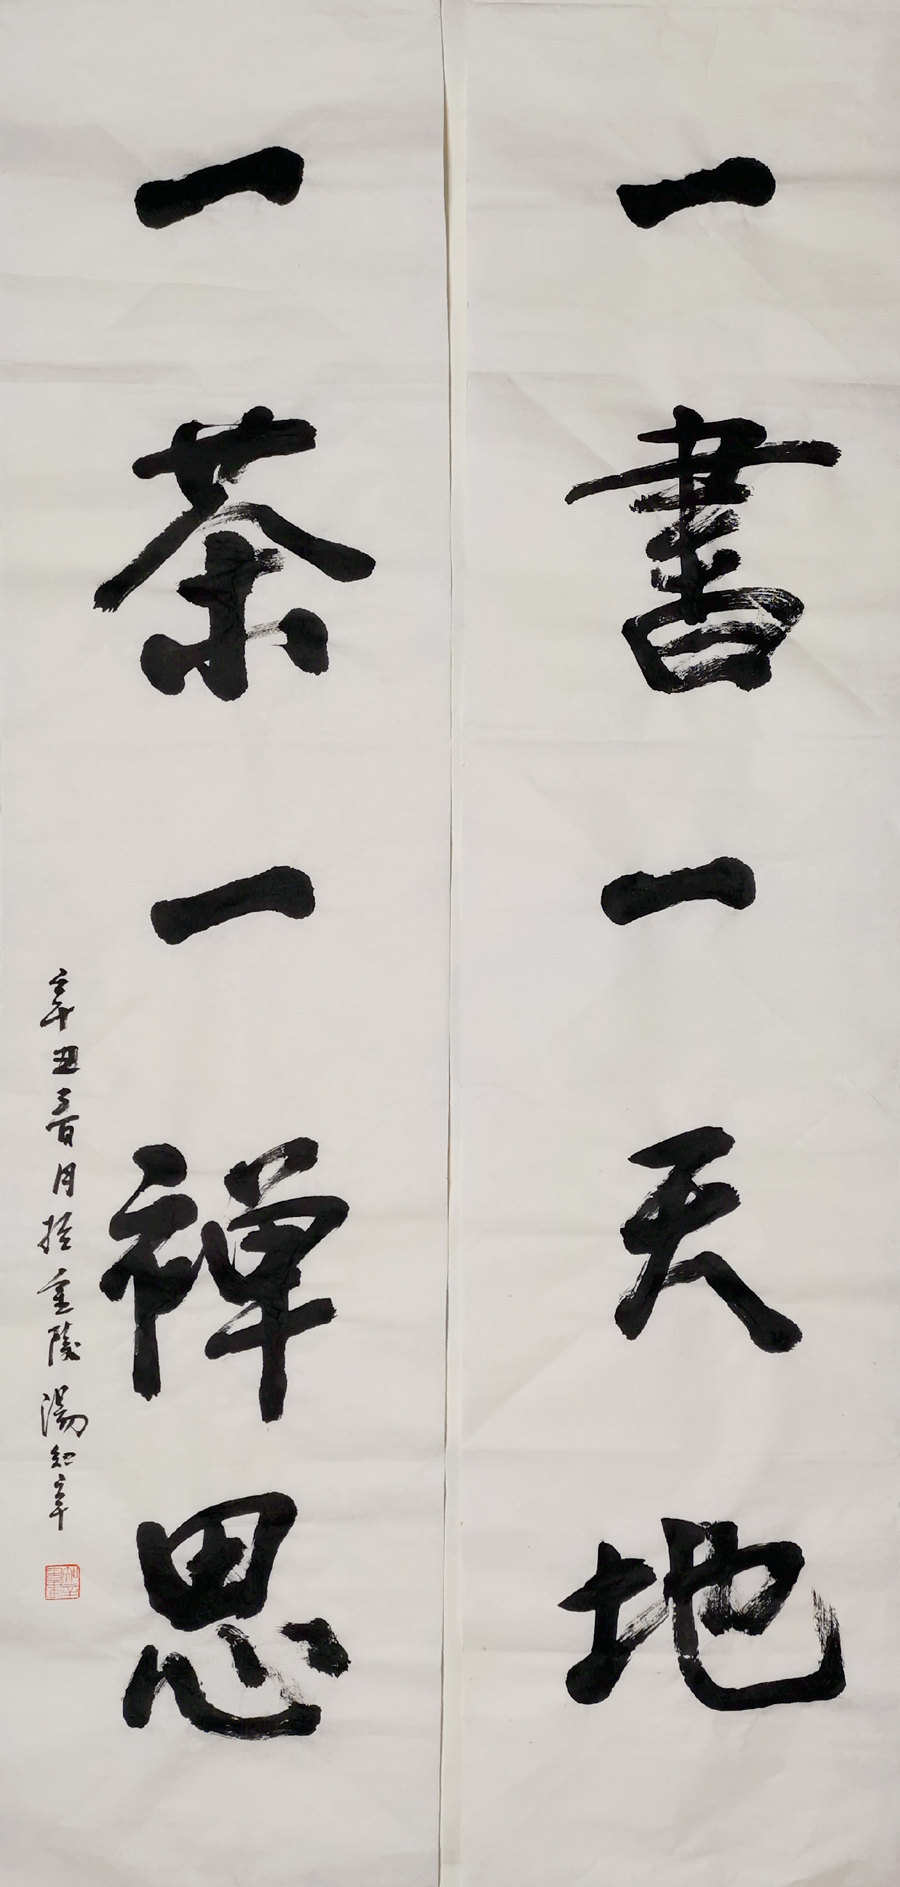 一書一天地
一茶一禅思
辛丑春月於金陵湯知辛